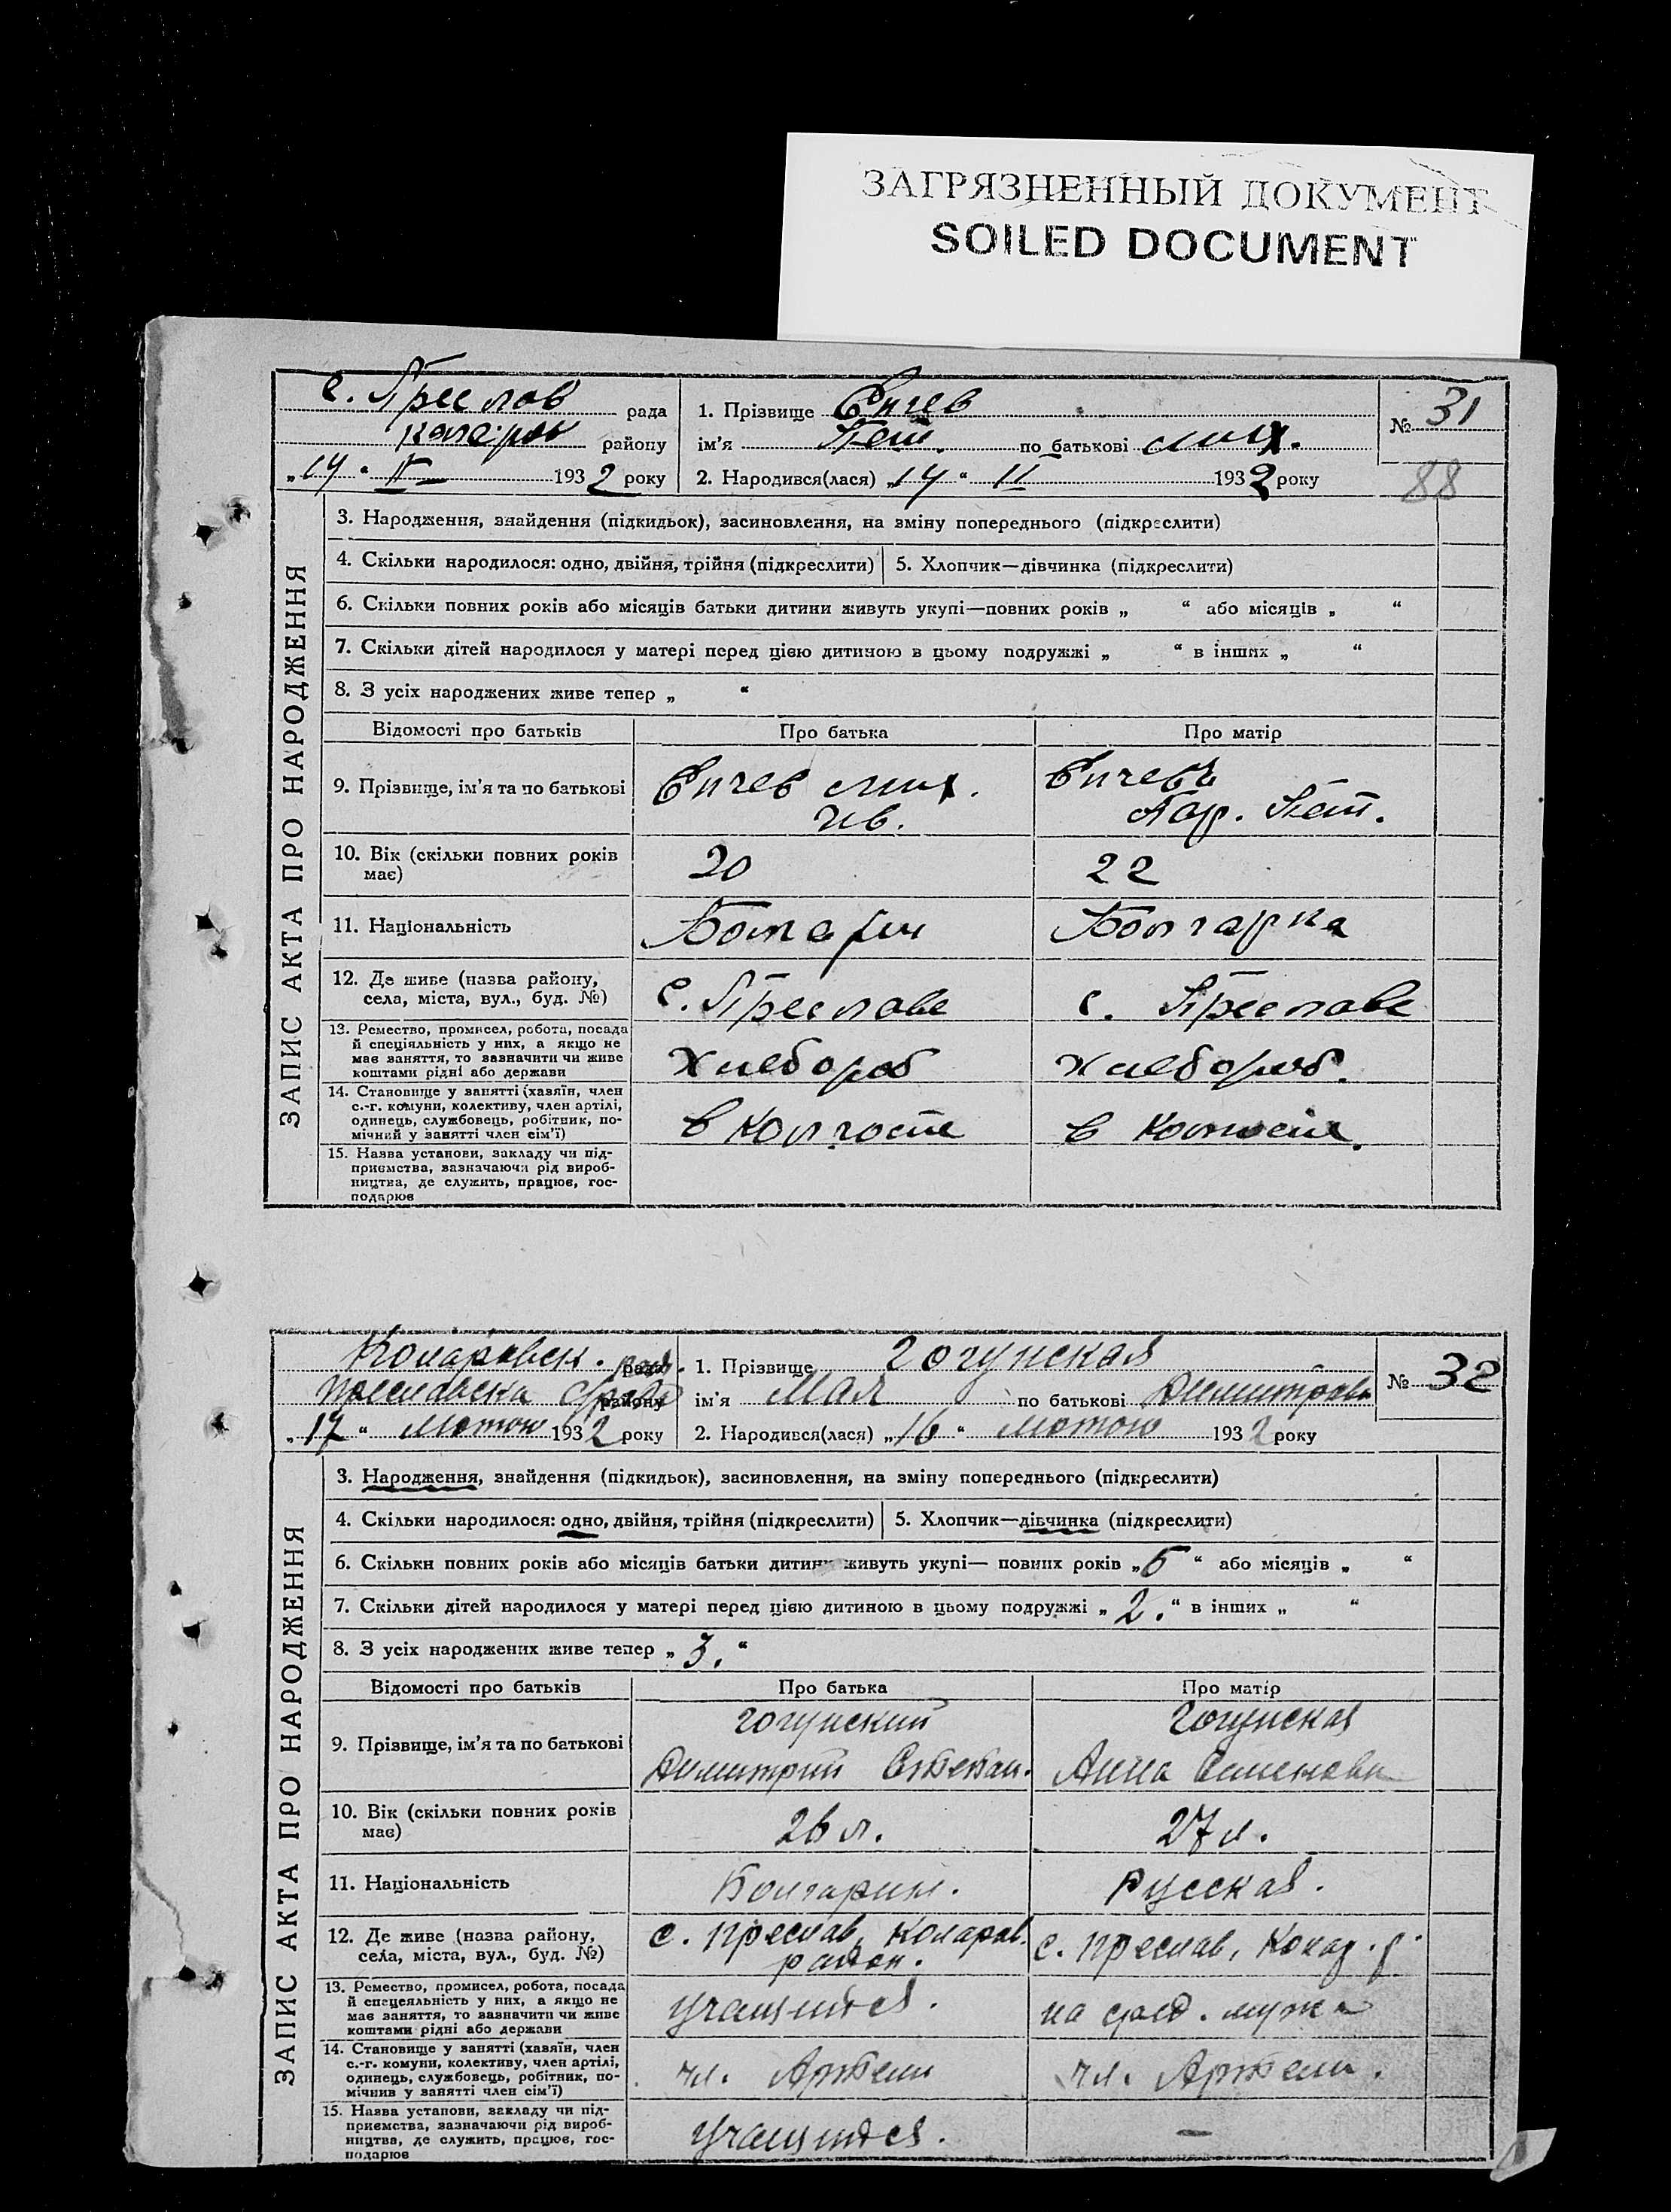 ЗАГРЯЗНЕННЫЙ ДОКУМЕНТ
SOILED DOCUMENT
с. Преслов рада
району
„14“ II 1932 року
1. Прізвище Енчев
ім'я Пет. по батькові Мих.
2. Народився(лася) „14“ II 1932 року
№ 31
88
ЗАПИС АКТА ПРО НАРОДЖЕННЯ
3. Народження, знайдення (підкидьок), засиновлення, на зміну попереднього (підкреслити)
4. Скільки народилося: одно, двійня, трійня (підкреслити) 5. Хлопчик—дівчинка (підкреслити)
6. Скільки повних років або місяців батьки дитини живуть укупі—повних років „ “ або місяців „ “
7. Скільки дітей народилося у матері перед цією дитиною в цьому подружжі „ “ в інших „ “
8. З усіх народжених живе тепер „ “
Відомості про батьків Про батька Про матір
9. Прізвище, ім'я та по батькові Енчев Мих. Ив. Енчева Пет.
10. Вік (скільки повних років має) 20 22
11. Національність Болгарин Болгарка
12. Де живе (назва району, села, міста, вул., буд. №) с. Преславе с. Преславе
13. Ремество, промисел, робота, посада й спеціяльність у них, а якщо не має заняття, то зазначити чи живе коштами рідні або держави Хлебороб Хлебороб.
14. Становище у занятті (хазяїн, член с.-г. комуни, колективу, член артілі, одинець, службовець, робітник, помічний у занятті член сім'ї) в Колгоспе в Колгоспе.
15. Назва установи, закладу чи підприємства, зазначаючи рід виробництва, де служить, працює, господарює
Коларовск. рада
району
„17“ Лютого 1932 року
1. Прізвище Гогунская
ім'я Мая по батькові Димитрова
2. Народився(лася) „16“ Лютого 1932 року
№ 32
ЗАПИС АКТА ПРО НАРОДЖЕННЯ
3. Народження, знайдення (підкидьок), засиновлення, на зміну попереднього (підкреслити)
4. Скільки народилося: одно, двійня, трійня (підкреслити) 5. Хлопчик—дівчинка (підкреслити)
6. Скільки повних років або місяців батьки дитини живуть укупі— повних років „5“ або місяців „ “
7. Скільки дітей народилося у матері перед цією дитиною в цьому подружжі „2.“ в інших „ “
8. З усіх народжених живе тепер „3.“
Відомості про батьків Про батька Про матір
9. Прізвище, ім'я та по батькові Гогунский Димитрий Степан. Гогунская Анна Семенова
10. Вік (скільки повних років має) 26 л. 27 л.
11. Національність Болгарин. Русская.
12. Де живе (назва району, села, міста, вул., буд. №) с. Преслав, Коларов. район. с. Преслав, Колар. р.
13. Ремество, промисел, робота, посада й спецеяльність у них, а якщо не має заняття, то зазначити чи живе коштами рідні або держави учащийся. на сред. мужа
14. Становище у занятті (хазяїн, член с.-г. комуни, колективу, член артілі, одинець, службовець, робітник, помічнив у занятті член сім'ї) чл. Артели чл. Артели.
15. Назва установи, закладу чи підприємства, зазначаючи рід виробництва, де служить, працює, господарює учащийся. —